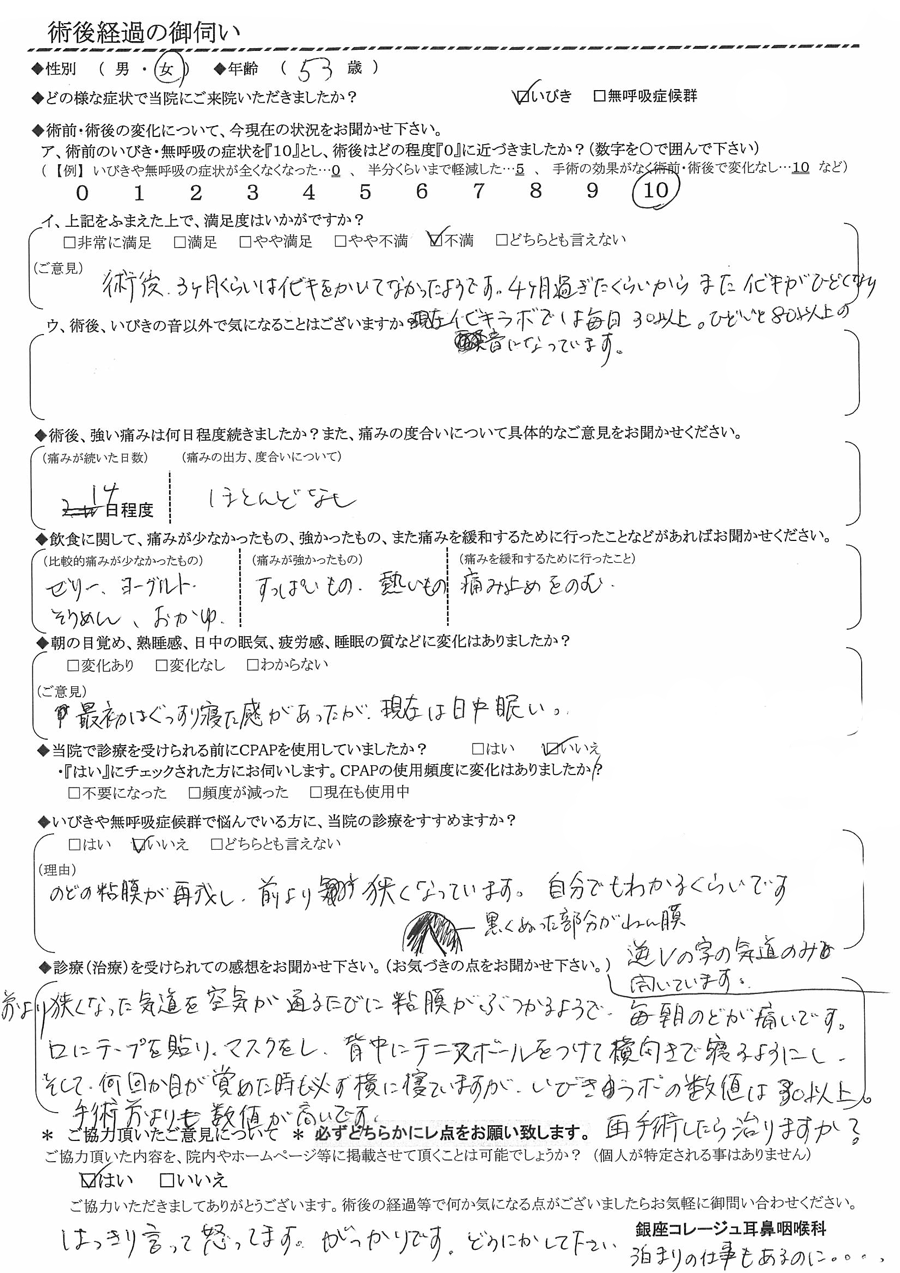 術後経過の御伺い
◆性別 ( 男 ・ 女 ) ◆年齢 ( 53 歳 )
◆どの様な症状で当院にご来院いただきましたか? ☑いびき □無呼吸症候群
◆術前・術後の変化について、今現在の状況をお聞かせ下さい。
ア、術前のいびき・無呼吸の症状を『10』とし、術後はどの程度『0』に近づきましたか?(数字を〇で囲んで下さい)
(【例】 いびきや無呼吸の症状が全くなくなった…0 、 半分くらいまで軽減した…5 、 手術の効果がなく術前・術後で変化なし…10 など)
0 1 2 3 4 5 6 7 8 9 10
イ、上記をふまえた上で、満足度はいかがですか?
□非常に満足 □満足 □やや満足 □やや不満 ☑不満 □どちらとも言えない
(ご意見)
術後、3ヶ月くらいはイビキをかいてなかったようです。4ヶ月過ぎたくらいから また イビキがひどくなり
ウ、術後、いびきの音以外で気になることはございますか
現在イビキラボでは毎日30以上。ひどいと80以上の
音になっています。
◆術後、強い痛みは何日程度続きましたか?また、痛みの度合いについて具体的なご意見をお聞かせください。
(痛みが続いた日数) (痛みの出方、度合いについて)
14日程度 ほとんどなし
◆飲食に関して、痛みが少なかったもの、強かったもの、また痛みを緩和するために行ったことなどがあればお聞かせください。
(比較的痛みが少なかったもの) (痛みが強かったもの) (痛みを緩和するために行ったこと)
ゼリー、ヨーグルト すっぱいもの、熱いもの 痛み止めをのむ
そうめん、おかゆ
◆朝の目覚め、熟睡感、日中の眠気、疲労感、睡眠の質などに変化はありましたか?
□変化あり □変化なし □わからない
(ご意見)
最初はぐっすり寝た感があったが、現在は日中眠い。
◆当院で診療を受けられる前にCPAPを使用していましたか? □はい ☑いいえ
・『はい』にチェックされた方にお伺いします。CPAPの使用頻度に変化はありましたか?
□不要になった □頻度が減った □現在も使用中
◆いびきや無呼吸症候群で悩んでいる方に、当院の診療をすすめますか?
□はい ☑いいえ □どちらとも言えない
(理由)
のどの粘膜が再成し、前より狭くなっています。自分でもわかるくらいです
黒くぬった部分がねん膜
逆Vの字の気道のみ
開いています。
◆診療(治療)を受けられての感想をお聞かせ下さい。(お気づきの点をお聞かせ下さい。)
前より狭くなった気道を空気が通るたびに粘膜がぶつかるようで、毎朝のどが痛いです。
口にテープを貼り、マスクをし、背中にテニスボールをつけて横向きで寝るようにし、
そして、何回か目が覚めた時も必ず横に寝ていますが、いびきラボの数値は30以上。
手術前よりも数値が高いです。
再手術したら治りますか?
* ご協力頂いたご意見について * 必ずどちらかにレ点をお願い致します。
ご協力頂いた内容を、院内やホームページ等に掲載させて頂くことは可能でしょうか? (個人が特定される事はありません)
☑はい □いいえ
ご協力いただきましてありがとうございます。術後の経過等で何か気になる点がございましたらお気軽に御問い合わせください。
銀座コレージュ耳鼻咽喉科
はっきり言って怒ってます。がっかりです。どうにかして下さい
泊まりの仕事もあるのに....